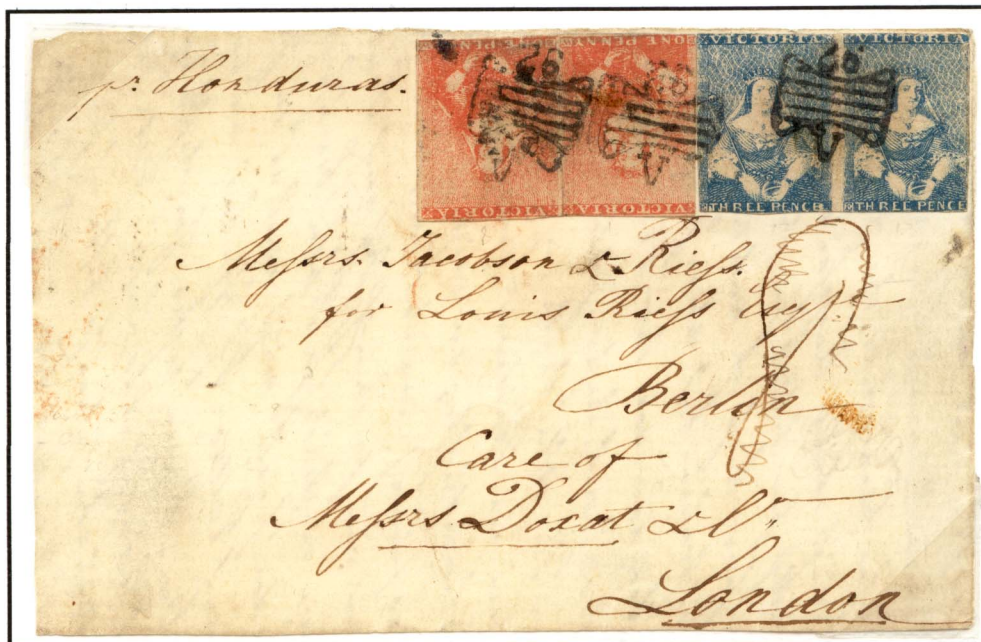 pr. Honduras.
ONE PENNY ONE PENNY
VICTORIA VICTORIA
VICTORIA VICTORIA
THREE PENCE THREE PENCE
26 V
26 V
26 V
Messrs. Jacobson & Riess.
for Louis Riess Esqr.
Berlin
Care of
Messrs Doxat & Co.
London